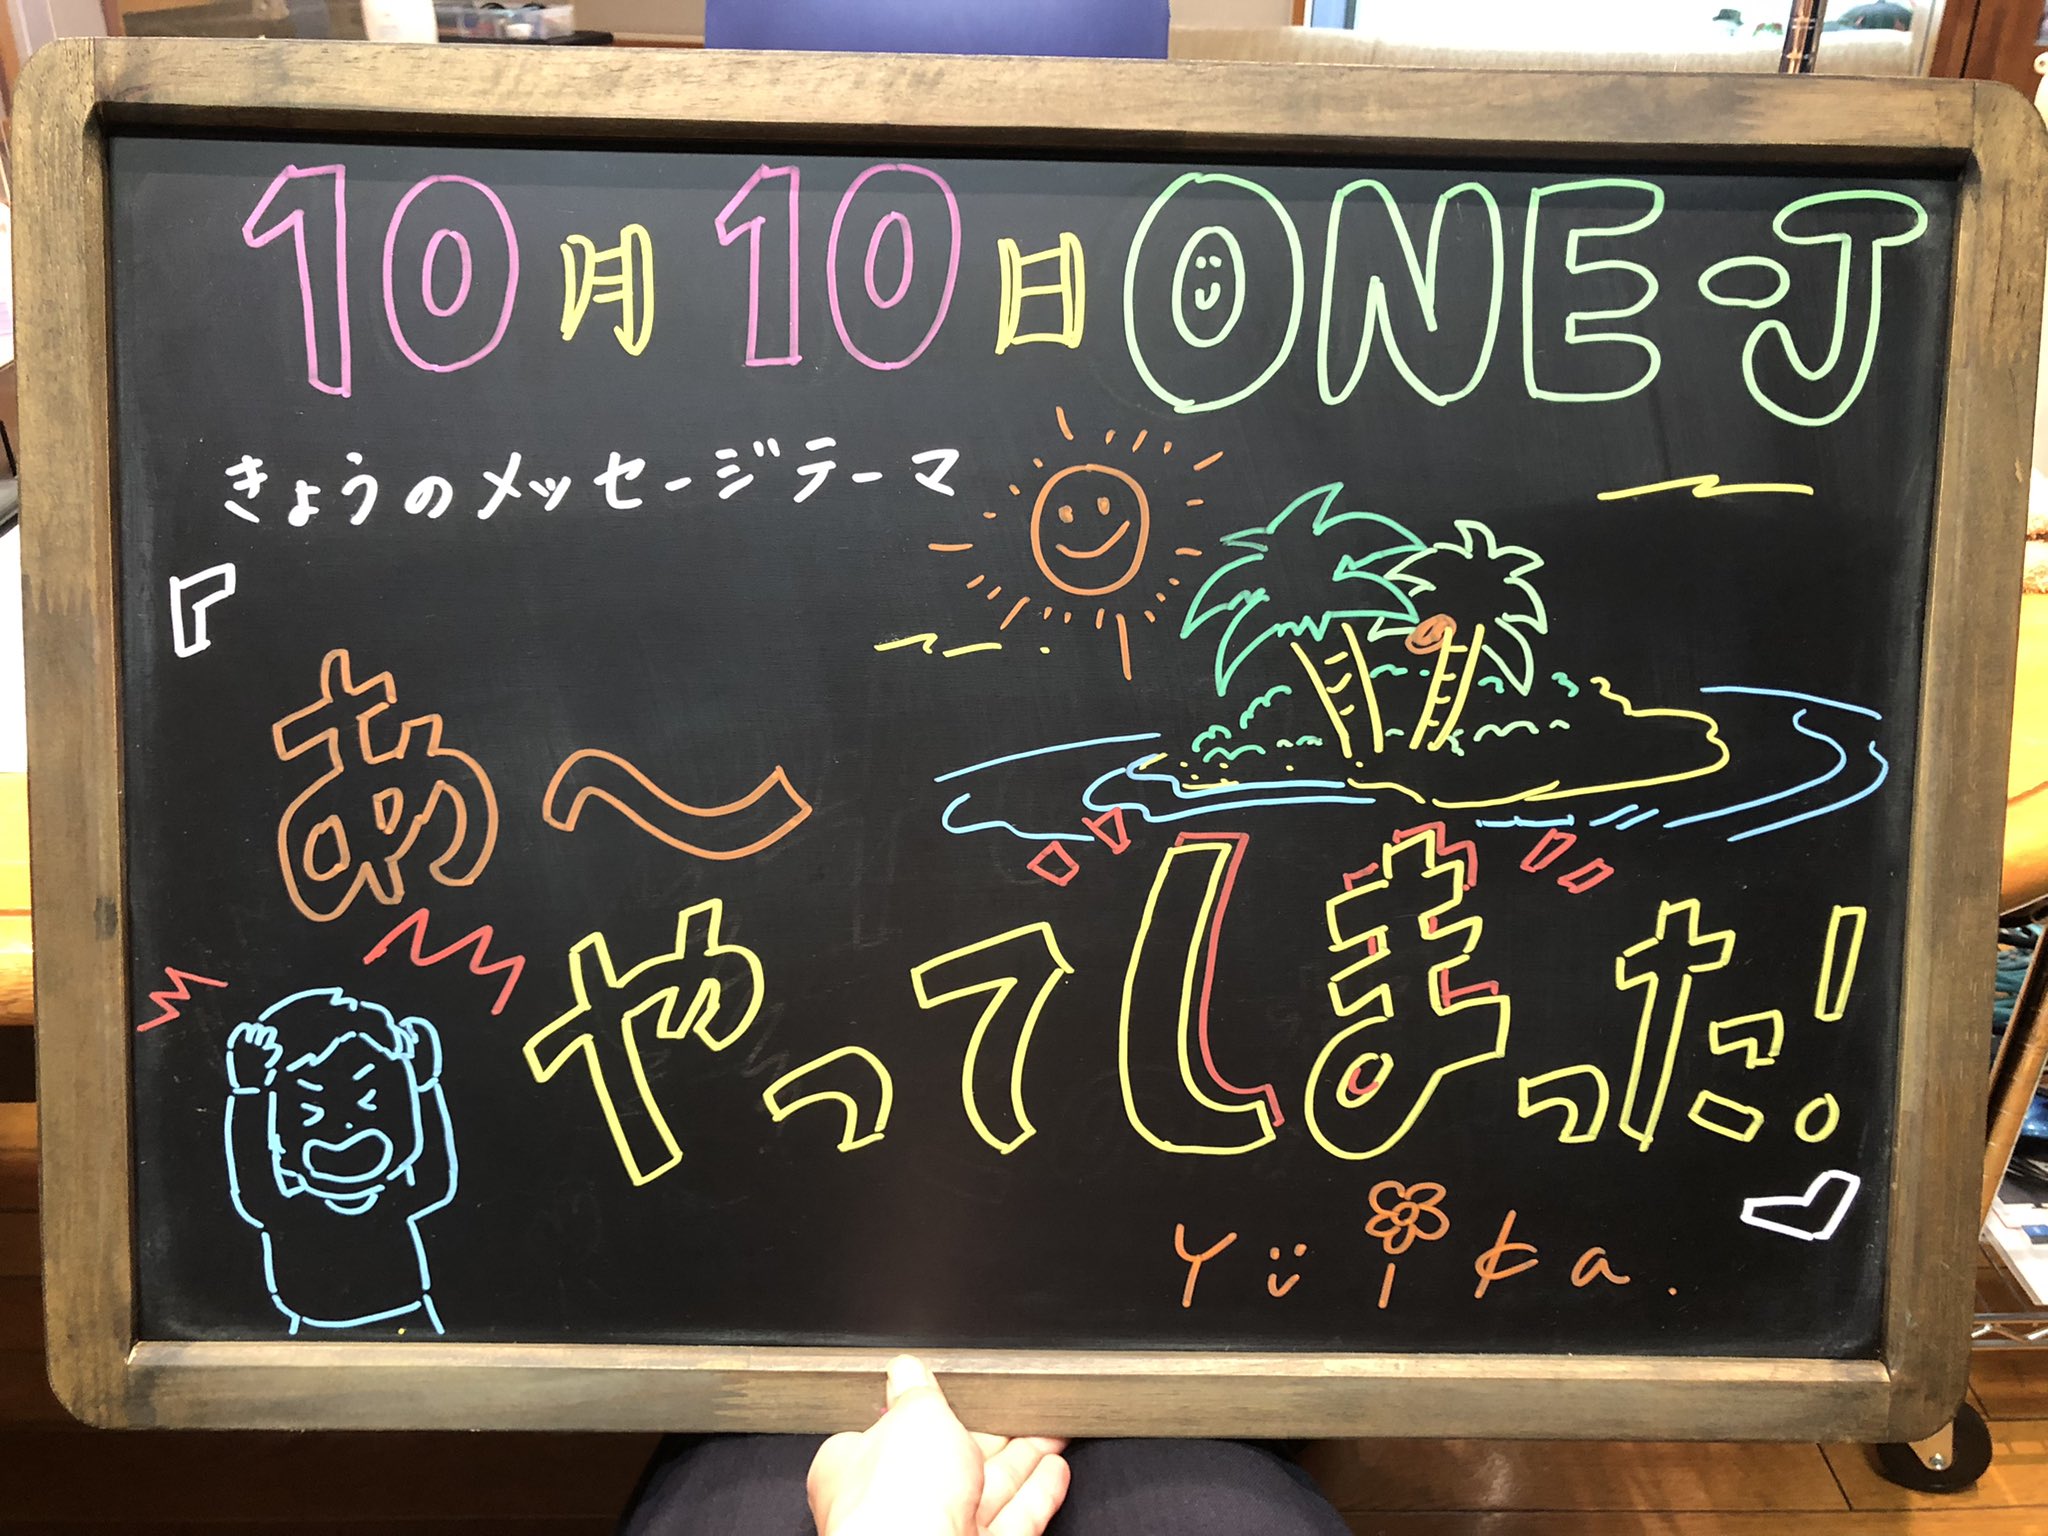 10月10日 ONE-J
きょうのメッセージテーマ
『あ〜
やってしまった!』
Yuika.